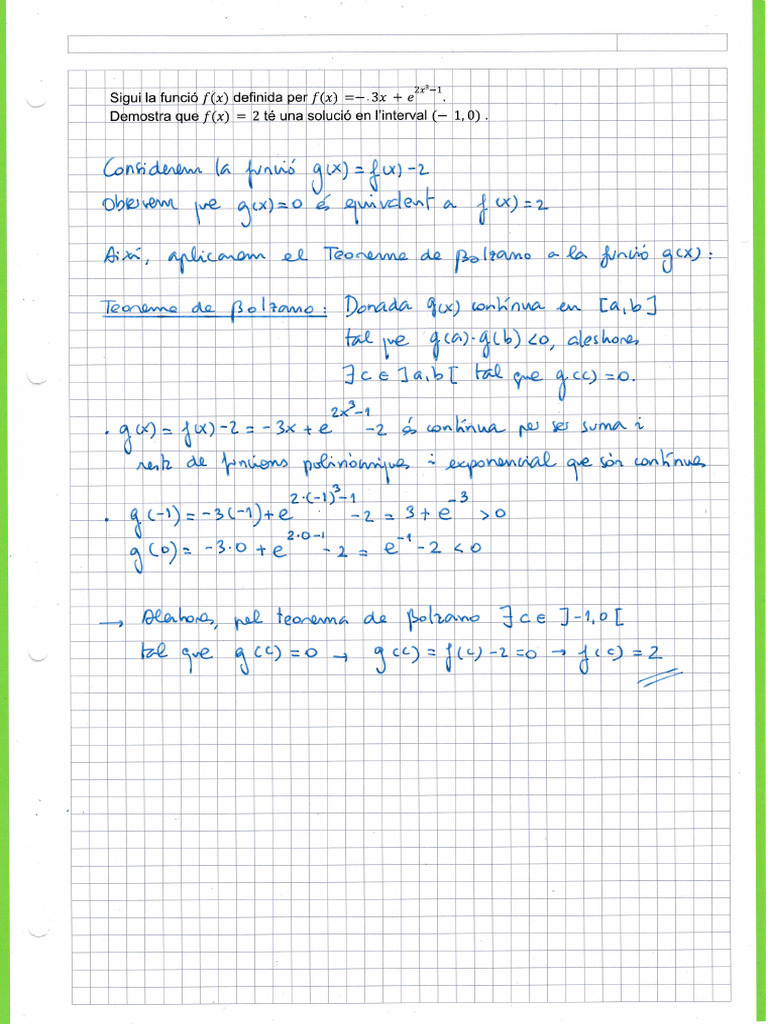 Sigui la funció f(x) definida per f(x) = -. 3x + e^{2x³-1}.
Demostra que f(x) = 2 té una solució en l'interval (- 1, 0) .
Considerem la funció g(x) = f(x) - 2
Observem que g(x) = 0 és equivalent a f(x) = 2
Així, aplicarem el Teorema de Bolzano a la funció g(x) :
Teorema de Bolzano : Donada g(x) contínua en [a,b]
tal que g(a)·g(b) < 0, aleshores
∃ c ∈ ]a,b[ tal que g(c) = 0.
· g(x) = f(x) - 2 = -3x + e^{2x³-1} - 2 és contínua per ser suma i
resta de funcions polinòmiques i exponencial que són contínues
· g(-1) = -3(-1) + e^{2·(-1)³-1} - 2 = 3 + e^{-3} > 0
g(0) = -3·0 + e^{2·0-1} - 2 = e^{-1} - 2 < 0
→ Aleshores, pel teorema de Bolzano ∃ c ∈ ]-1,0[
tal que g(c) = 0 → g(c) = f(c) - 2 = 0 → f(c) = 2